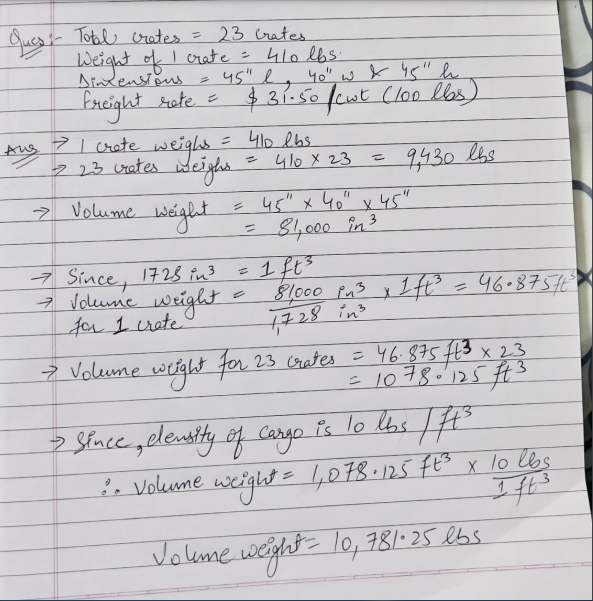 Ques:- Total crates = 23 crates
Weight of 1 crate = 410 lbs.
Dimensions = 45" l, 40" w & 45" h
Freight rate = $ 31.50 /cwt (100 lbs)
Ans → 1 crate weighs = 410 lbs
→ 23 crates weighs = 410 × 23 = 9,430 lbs
→ Volume weight = 45" × 40" × 45"
= 81,000 in³
→ Since, 1728 in³ = 1 ft³
→ Volume weight = 81,000 in³ / 1,728 in³ × 1 ft³ = 46.875 ft³
for 1 crate
→ Volume weight for 23 crates = 46.875 ft³ × 23
= 1078.125 ft³
→ Since, density of cargo is 10 lbs / ft³
∴ Volume weight = 1,078.125 ft³ × 10 lbs / 1 ft³
Volume weight = 10,781.25 lbs